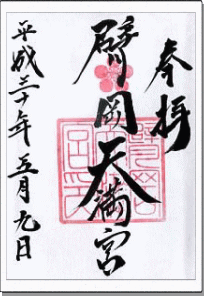 奉拝
臂岡天満宮
平成三十年五月九日